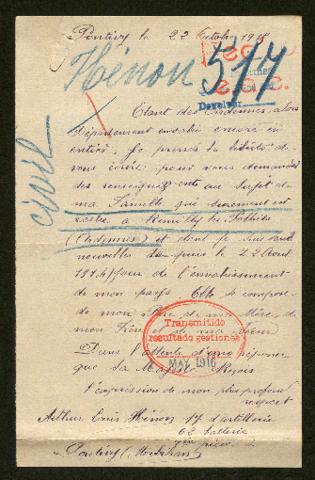 Pontivy le 22 Octobre 1915
Hénon 517
Developer
Etant des Ardennes, alors
Département envahi encore en
entier, Je prends la liberté de
vous écrire pour vous demander
des renseignements au sujet de
ma famille qui dernièrement est
restée à Remilly les Pothées
(Ardennes) et dont je suis sans
nouvelles depuis le 22 Aout
1914, jour de l'envahissement
de mon pays Elle se compose
de mon Père de ma Mère de
mon Frère et de ma
Dans l'attente d'une réponse
que Sa Majesté Reçois
l'expression de mon plus profond
respect
Arthur Hénon 17 d'artillerie
62 batterie
Pontivy (Morbihan)
civil
Transmitido
resultado gestiones
MAY. 1916